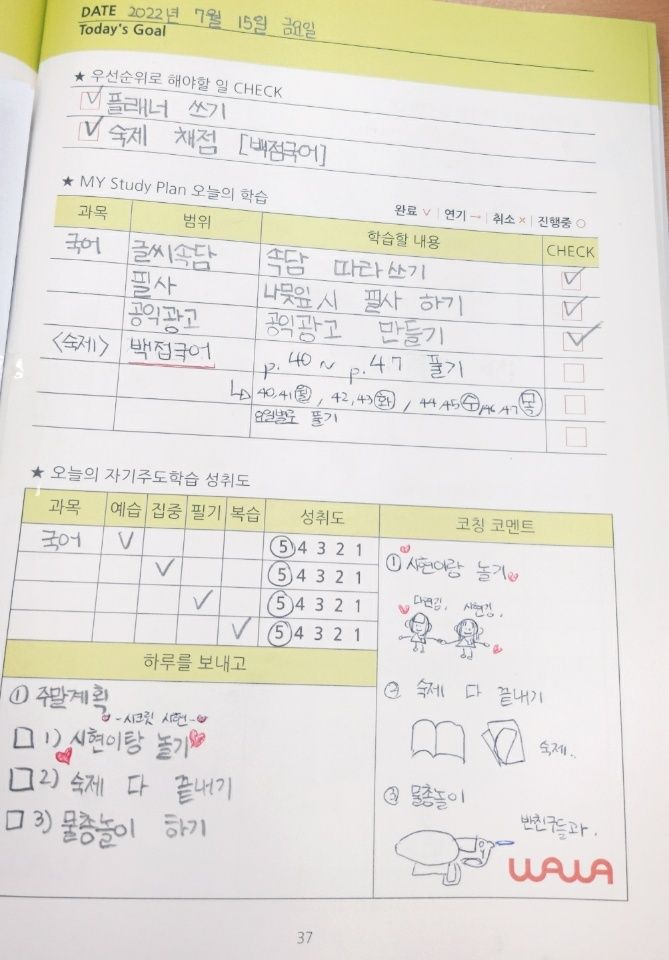 DATE 2022년 7월 15일 금요일
Today's Goal
★ 우선순위로 해야할 일 CHECK
플래너 쓰기
숙제 채점 [백점국어]
★ MY Study Plan 오늘의 학습
완료 ∨ | 연기 → | 취소 × | 진행중 ○
과목 범위 학습할 내용 CHECK
국어 글씨속담 속담 따라쓰기
필사 나뭇잎 시 필사 하기
공익광고 공익광고 만들기
<숙제> 백점국어 p.40 ~ p.47 풀기
↳ 40,41 월, 42,43 화, 44,45 수, 46,47 목
요일별로 풀기
★ 오늘의 자기주도학습 성취도
과목 예습 집중 필기 복습 성취도
국어 ∨ ⑤ 4 3 2 1
∨ ⑤ 4 3 2 1
∨ ⑤ 4 3 2 1
∨ ⑤ 4 3 2 1
하루를 보내고
① 주말계획
-시크릿 시현-
1) 시현이랑 놀기
2) 숙제 다 끝내기
3) 물총놀이 하기
코칭 코멘트
① 시현이랑 놀기
다현김. 시현김.
② 숙제 다 끝내기
숙제..
③ 물총놀이
반친구들과.
WAWA
37